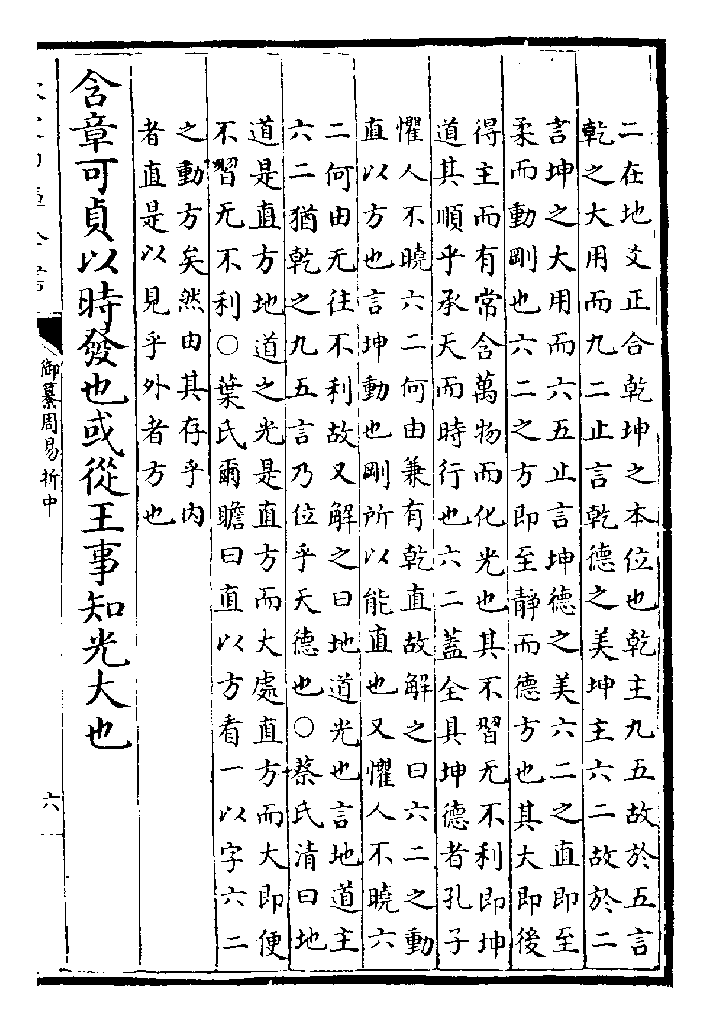 二在地爻正合乾坤之本位也乾主九五故於五言
乾之大用而九二止言乾德之美坤主六二故於二
言坤之大用而六五止言坤德之美六二之直即至
柔而動剛也六二之方即至靜而德方也其大即後
得主而有常含萬物而化光也其不習无不利即坤
道其順乎承天而時行也六二蓋全具坤德者孔子
懼人不曉六二何由兼有乾直故解之曰六二之動
直以方也言坤動也剛所以能直也又懼人不曉六
二何由无往不利故又解之曰地道光也言地道主
六二猶乾之九五言乃位乎天德也○蔡氏清曰地
道是直方地道之光是直方而大處直方而大即便
不習无不利○葉氏爾瞻曰直以方看一以字六二
之動方矣然由其存乎内
者直是以見乎外者方也
含章可貞以時發也或從王事知光大也
御纂周易折中
六